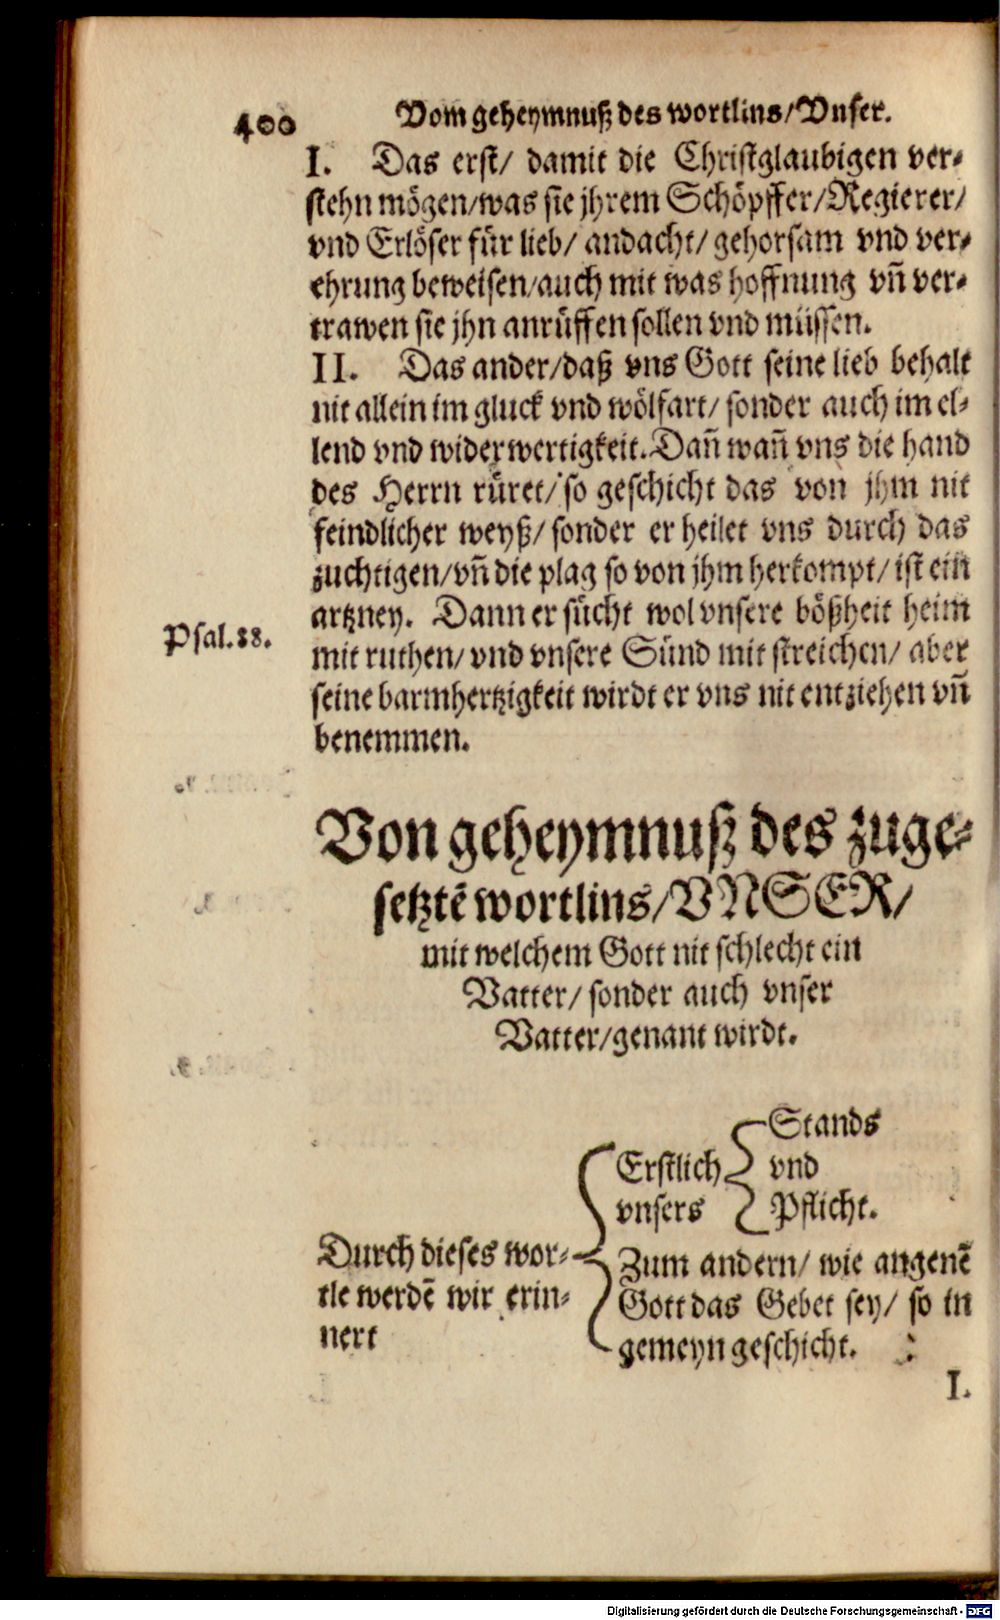 400
Vom geheymnuß des wortlins/Vnser.
I. Das erst/ damit die Christglaubigen ver-
stehn mögen/was sie jhrem Schöpffer/Regierer/
vnd Erlöser für lieb/ andacht/ gehorsam vnd ver-
ehrung beweisen/auch mit was hoffnung vñ ver-
trawen sie jhn anrüffen sollen vnd müssen.
II. Das ander/daß vns Gott seine lieb behalt
nit allein im gluck vnd wölfart/ sonder auch im el-
lend vnd widerwertigkeit. Dañ wañ vns die hand
des Herrn rüret/ so geschicht das von jhm nit
feindlicher weyß/ sonder er heilet vns durch das
zuchtigen/vñ die plag so von jhm herkompt/ ist ein
artzney. Dann er sücht wol vnsere bößheit heim
Psal.88.
mit ruthen/ vnd vnsere Sünd mit streichen/ aber
seine barmhertzigkeit wirdt er vns nit entziehen vñ
benemmen.
Von geheymnuß des zuge-
setztē wortlins/VNSER/
mit welchem Gott nit schlecht ein
Vatter/ sonder auch vnser
Vatter/genant wirdt.
Durch dieses wor-
tle werdē wir erin-
nert
Erstlich
vnsers
Stands
vnd
Pflicht.
Zum andern/ wie angenē
Gott das Gebet sey/ so in
gemeyn geschicht.
I.
Digitalisierung gefördert durch die Deutsche Forschungsgemeinschaft - DFG